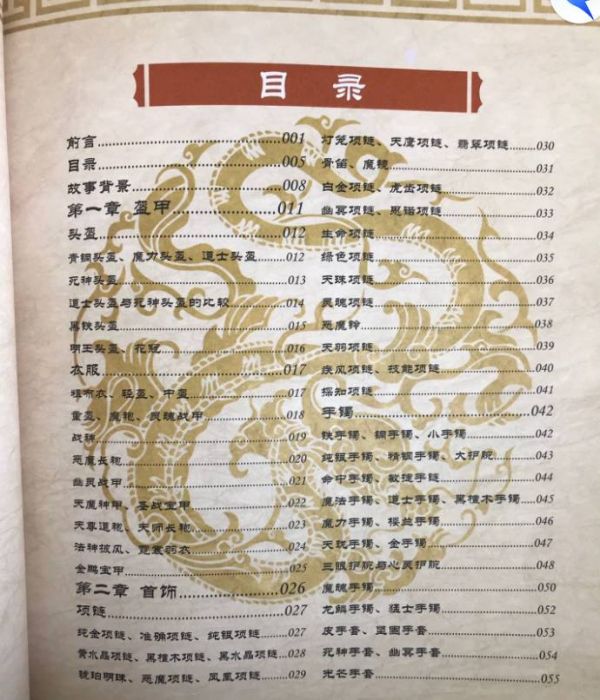 目录
前言 001
目录 005
故事背景 008
第一章 盔甲 011
头盔 012
青铜头盔、魔力头盔、道士头盔 012
死神头盔 013
道士头盔与死神头盔的比较 014
黑铁头盔 015
明王头盔、花冠 016
衣服 017
粗布衣、轻盔、中盔 017
重盔、魔袍、灵魂战甲 018
战神 019
恶魔长袍 020
幽灵战甲 021
天魔神甲、圣战宝甲 022
天尊道袍、天师长袍 023
法神披风、霓裳羽衣 024
金鹏宝甲 025
第二章 首饰 026
项链 027
纯金项链、准确项链、纯银项链 027
黄水晶项链、黑檀木项链、黑水晶项链 028
琥珀明珠、恶魔项链、凤凰项链 029
灯笼项链、天鹰项链、翡翠项链 030
骨笛、魔魂 031
白金项链、虎齿项链 032
幽冥项链、思铻项链 033
生命项链 034
绿色项链 035
天珠项链 036
灵魂项链 037
恶魔铃 038
天羽项链 039
疾风项链、技能项链 040
探知项链 041
手镯 042
铁手镯、铜手镯、小手镯 042
纯银手镯、精钢手镯、大护腕 043
命中手镯、敏捷手链 044
魔法手镯、道士手镯、黑檀木手镯 045
魔力手镯、楼兰手镯 046
天玩手镯、金手镯 047
三眼护腕与心灵护腕 048
魔魂手镯 050
龙鳞手镯、猛士手镯 052
皮手套、坚固手套 053
死神手套、幽冥手套 054
光芒手套 055